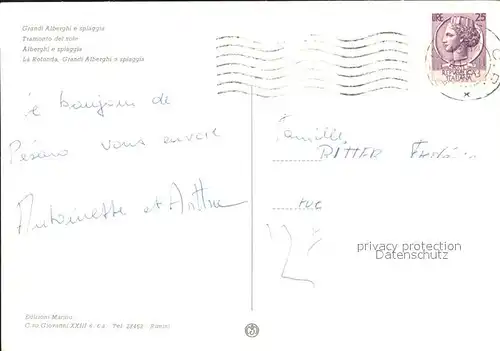 Grandi Alberghi e spiaggia
Tramonto del sole
Alberghi e spiaggia
La Rotonda, Grandi Alberghi e spiaggia
LIRE 25
REPUBBLICA
ITALIANA
le bonjour de
Pesaro vous envoie
Antoinette et Arthur
Famille
RITTER
rue
privacy protection
Datenschutz
Edizioni Marino
C.so Giovanni XXIII Tel. Rimini